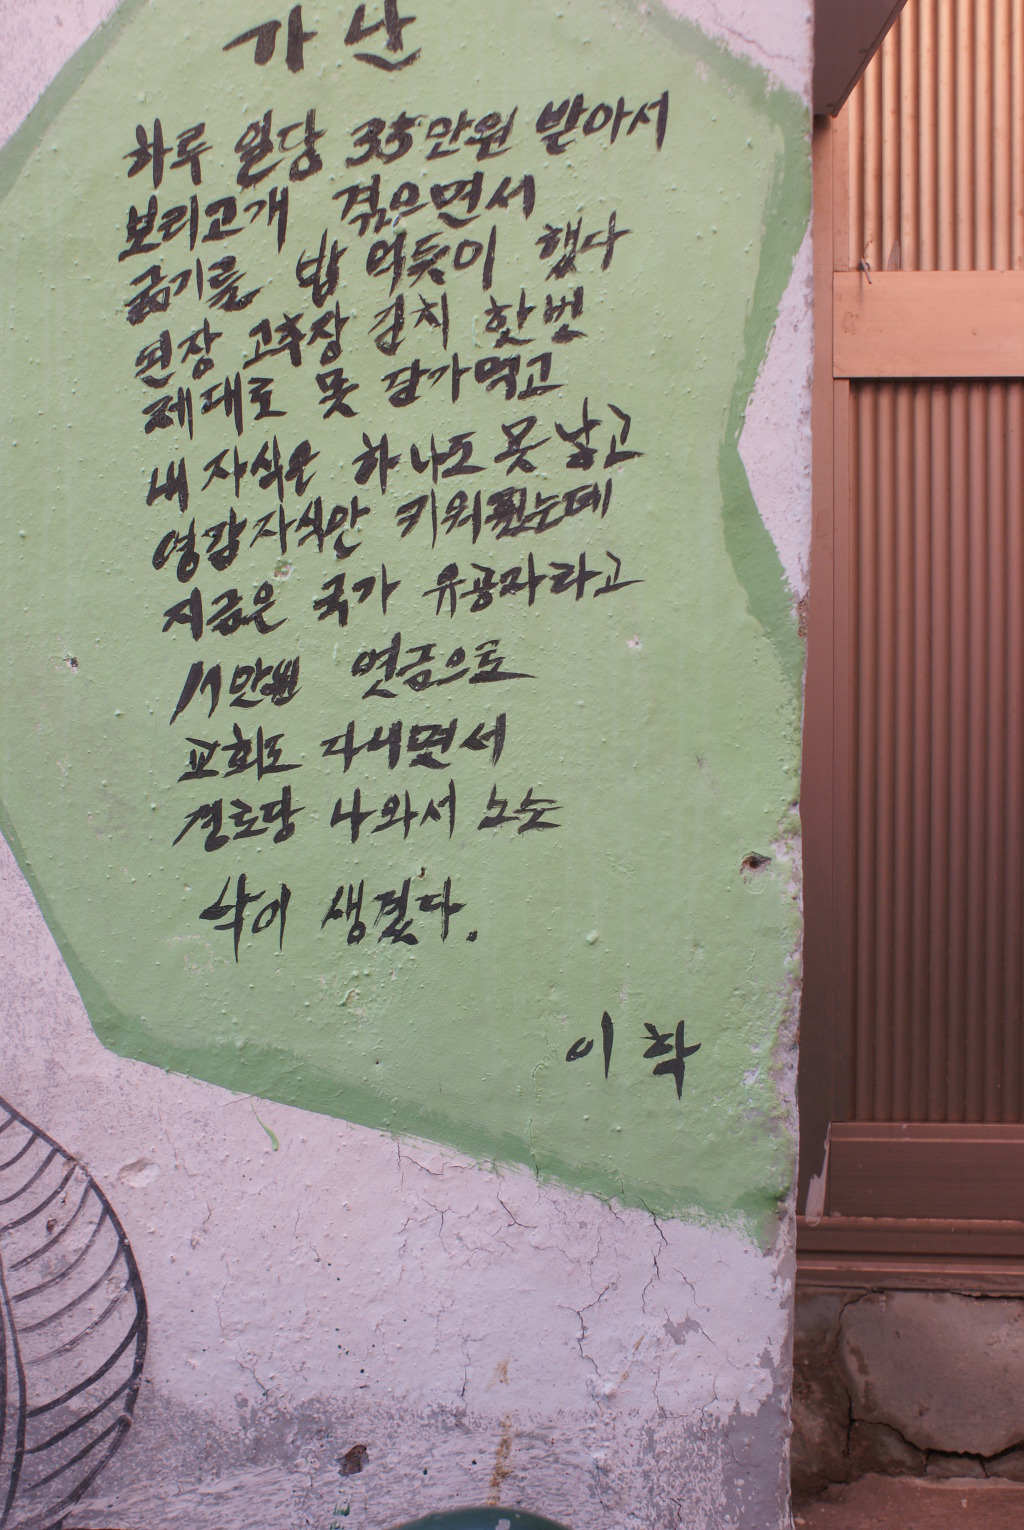 가난
하루 일당 35만원 받아서
보리고개 겪으면서
굶기를 밥 먹듯이 했다
된장 고추장 김치 한번
제대로 못 담가먹고
내 자식은 하나도 못 낳고
영감자식만 키워줬는데
지금은 국가 유공자라고
연금으로
교회도 다니면서
경로당 나와서 노는
낙이 생겼다.
이학